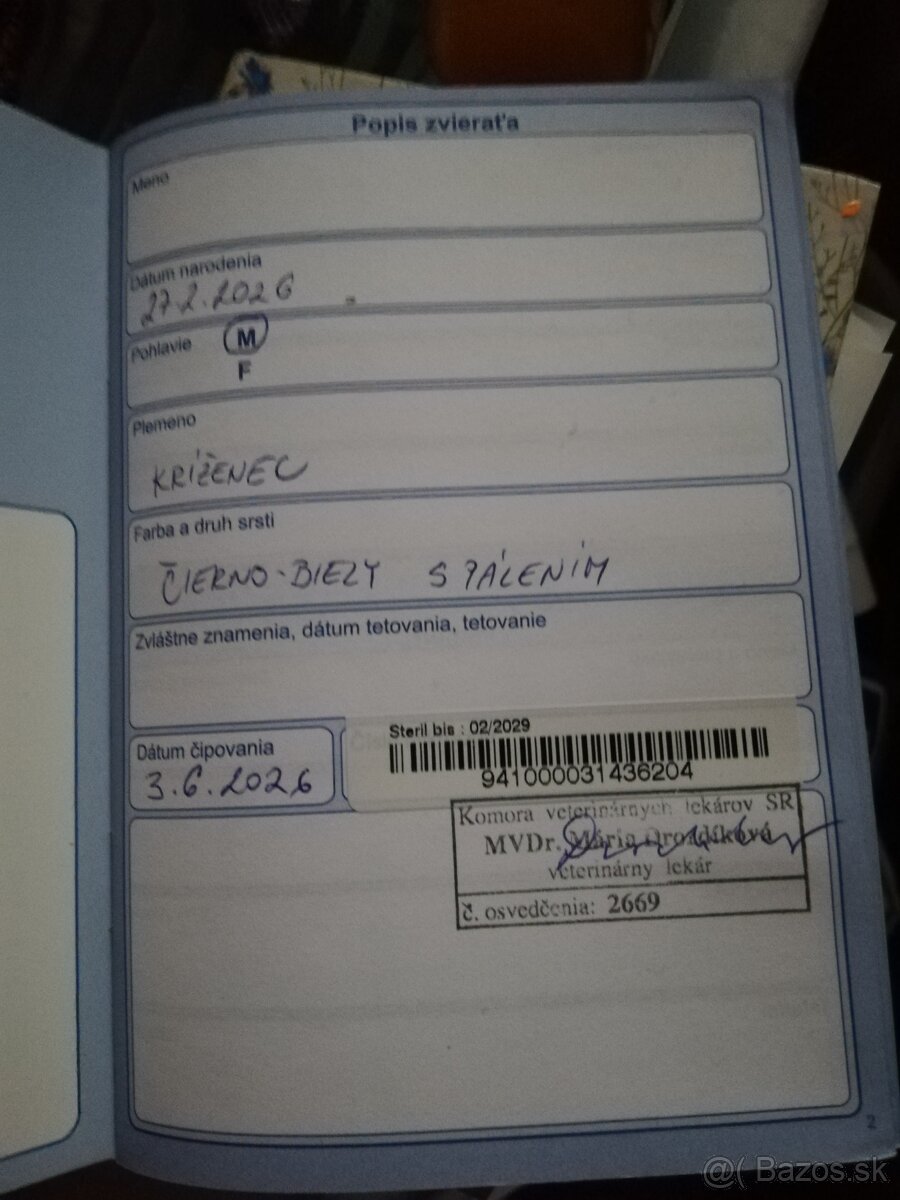 Popis zvieraťa
Meno
Dátum narodenia
27.2.2026
Pohlavie
M
F
Plemeno
KRÍŽENEC
Farba a druh srsti
ČIERNO-BIELY S PÁLENÍM
Zvláštne znamenia, dátum tetovania, tetovanie
Dátum čipovania
3.6.2026
Steril bis : 02/2029
941000031436204
Komora veterinárnych lekárov SR
MVDr. Mária Drozdíková
veterinárny lekár
č. osvedčenia: 2669
2
@( Bazos.sk